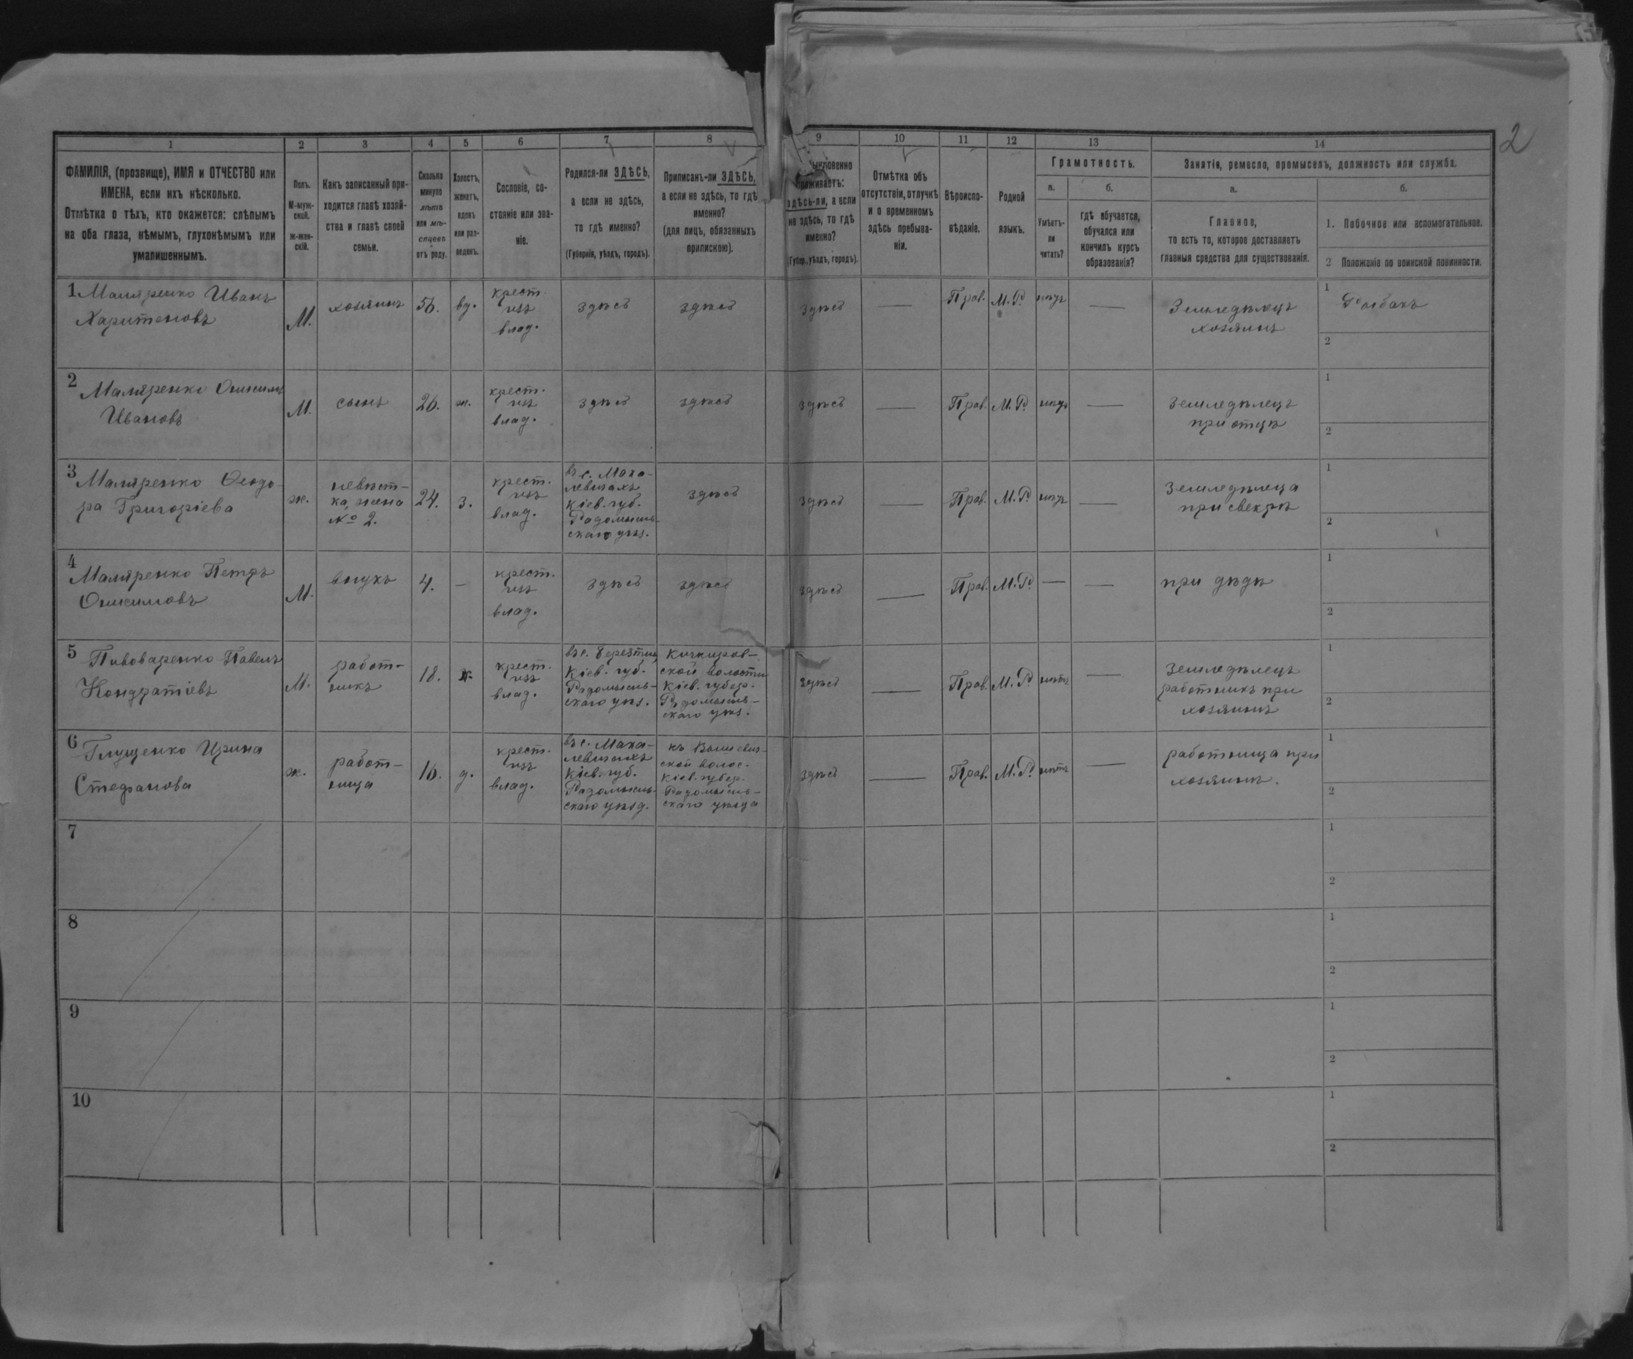 2
1 2 3 4 5 6 7 8 9 10 11 12 13 14
ФАМИЛІЯ, (прозвище), ИМЯ и ОТЧЕСТВО или
ИМЕНА, если ихъ нѣсколько.
Отмѣтка о тѣхъ, кто окажется: слѣпымъ
на оба глаза, нѣмымъ, глухонѣмымъ или
умалишеннымъ.
Полъ.
М-муж-
ской.
ж-жен-
скій.
Какъ записанный при-
ходится главѣ хозяй-
ства и главѣ своей
семьи.
Сколько
минуло
лѣтъ
или мѣ-
сяцевъ
отъ роду.
Холостъ,
женатъ,
вдовъ
или раз-
веденъ.
Сословіе, со-
стояніе или зва-
ніе.
Родился-ли ЗДѢСЬ,
а если не здѣсь,
то гдѣ именно?
(Губернія, уѣздъ, городъ).
Приписанъ-ли ЗДѢСЬ,
а если не здѣсь, то гдѣ
именно?
(для лицъ, обязанныхъ
припискою).
здѣсь-ли, а если
не здѣсь, то гдѣ
именно?
(Губер., уѣздъ, городъ).
Отмѣтка объ
отсутствіи, отлучкѣ
и о временномъ
здѣсь пребыва-
ніи.
Вѣроиспо-
вѣданіе.
Родной
языкъ.
Грамотность.
а.
Умѣетъ-
ли
читать?
б.
гдѣ обучается,
обучался или
кончилъ курсъ
образованія?
Занятіе, ремесло, промыселъ, должность или служба.
а.
Главное,
то есть то, которое доставляетъ
главныя средства для существованія.
б.
1. Побочное или вспомогательное.
2 Положеніе по воинской повинности.
1 Маляренко Иванъ
Харитоновъ
М.
хозяинъ
56.
вд.
крест.
изъ
влад.
здѣсь
здѣсь
здѣсь
—
Прав.
М.Р.
нѣтъ
—
Земледѣлецъ
хозяинъ
1 Рыбакъ
2
2 Маляренко Онисимъ
Ивановъ
М.
сынъ
26.
ж.
крест.
изъ
влад.
здѣсь
здѣсь
здѣсь
—
Прав.
М.Р.
нѣтъ
—
Земледѣлецъ
при отцѣ
1
2
3 Маляренко Ѳеодо-
ра Григоріева
ж.
невѣст-
ка, жена
№ 2.
24.
з.
крест.
изъ
влад.
въ с. Мака-
левичахъ
Кіев. губ.
Радомысль-
скаго уѣз.
здѣсь
здѣсь
—
Прав.
М.Р.
нѣтъ
—
Земледѣлица
при свекрѣ
1
2
4 Маляренко Петръ
Онисимовъ
М.
внукъ
4.
—
крест.
изъ
влад.
здѣсь
здѣсь
здѣсь
—
Прав.
М.Р.
—
—
при дѣдѣ
1
2
5 Пивоваренко Павелъ
Кондратіевъ
М.
работ-
никъ
18.
х.
крест.
изъ
влад.
Кіев. губ.
Радомысль-
скаго уѣз.
ской волости
Кіев. губер.
Радомысль-
скаго уѣз.
здѣсь
—
Прав.
М.Р.
нѣтъ
—
Земледѣлецъ
работникъ при
хозяинѣ
1
2
6 Глущенко Ирина
Стефанова
ж.
работ-
ница
16.
д.
крест.
изъ
влад.
въ с. Мака-
левичахъ
Кіев. губ.
Радомысль-
скаго уѣзд.
ской волос.
Кіев. губер.
Радомысль-
скаго уѣзда
здѣсь
—
Прав.
М.Р.
нѣтъ
—
работница при
хозяинѣ.
1
2
7
1
2
8
1
2
9
1
2
10
1
2